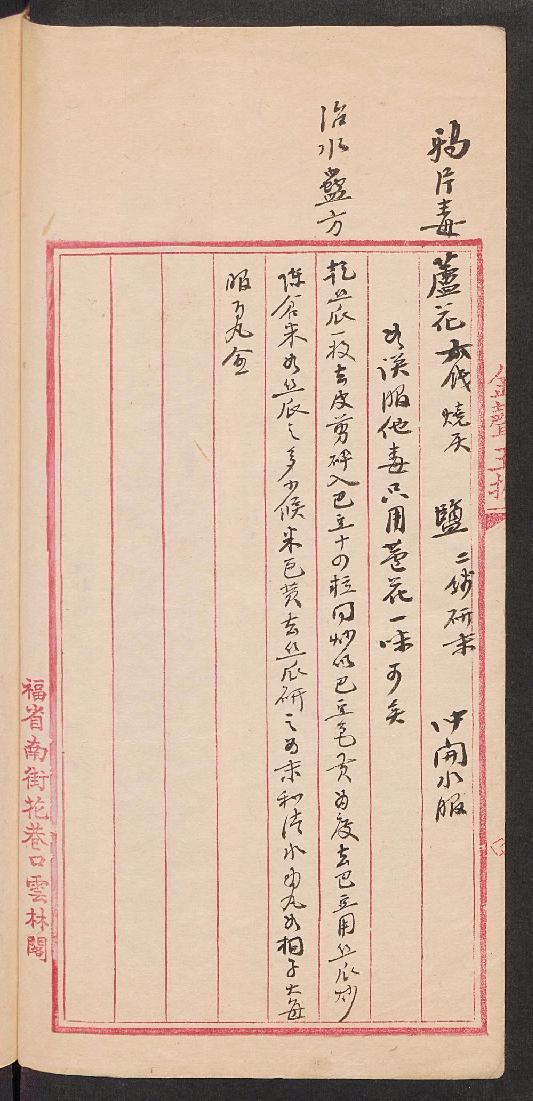 鴉片毒
蘆花 燒灰 鹽二錢研末 沖開水服
如誤服他毒只用蘆花一味可矣
治水蠱方
乾絲瓜一枚去皮剪碎入巴豆十四粒同炒以巴豆色黄為度去巴豆用絲瓜炒
陳倉米如絲瓜之多少候米色黄去絲瓜研之為末和清水為丸如桐子大每
服百丸愈
福省南街花巷口雲林閣